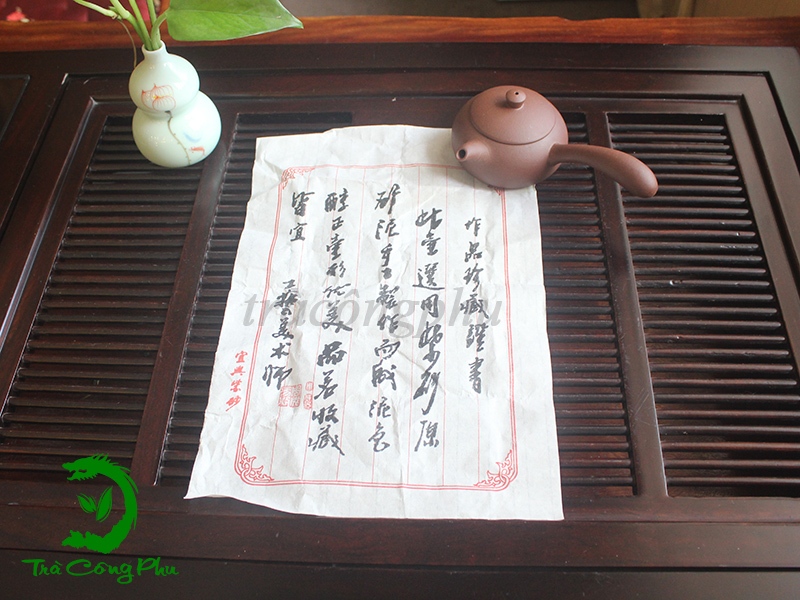 作品珍藏證書
此壶選用紫砂原
矿泥手工製作而成泥色
醇正壶形优美品茗收藏
皆宜
工藝美术师
宜興紫砂
tràcôngphu
Trà Công Phu